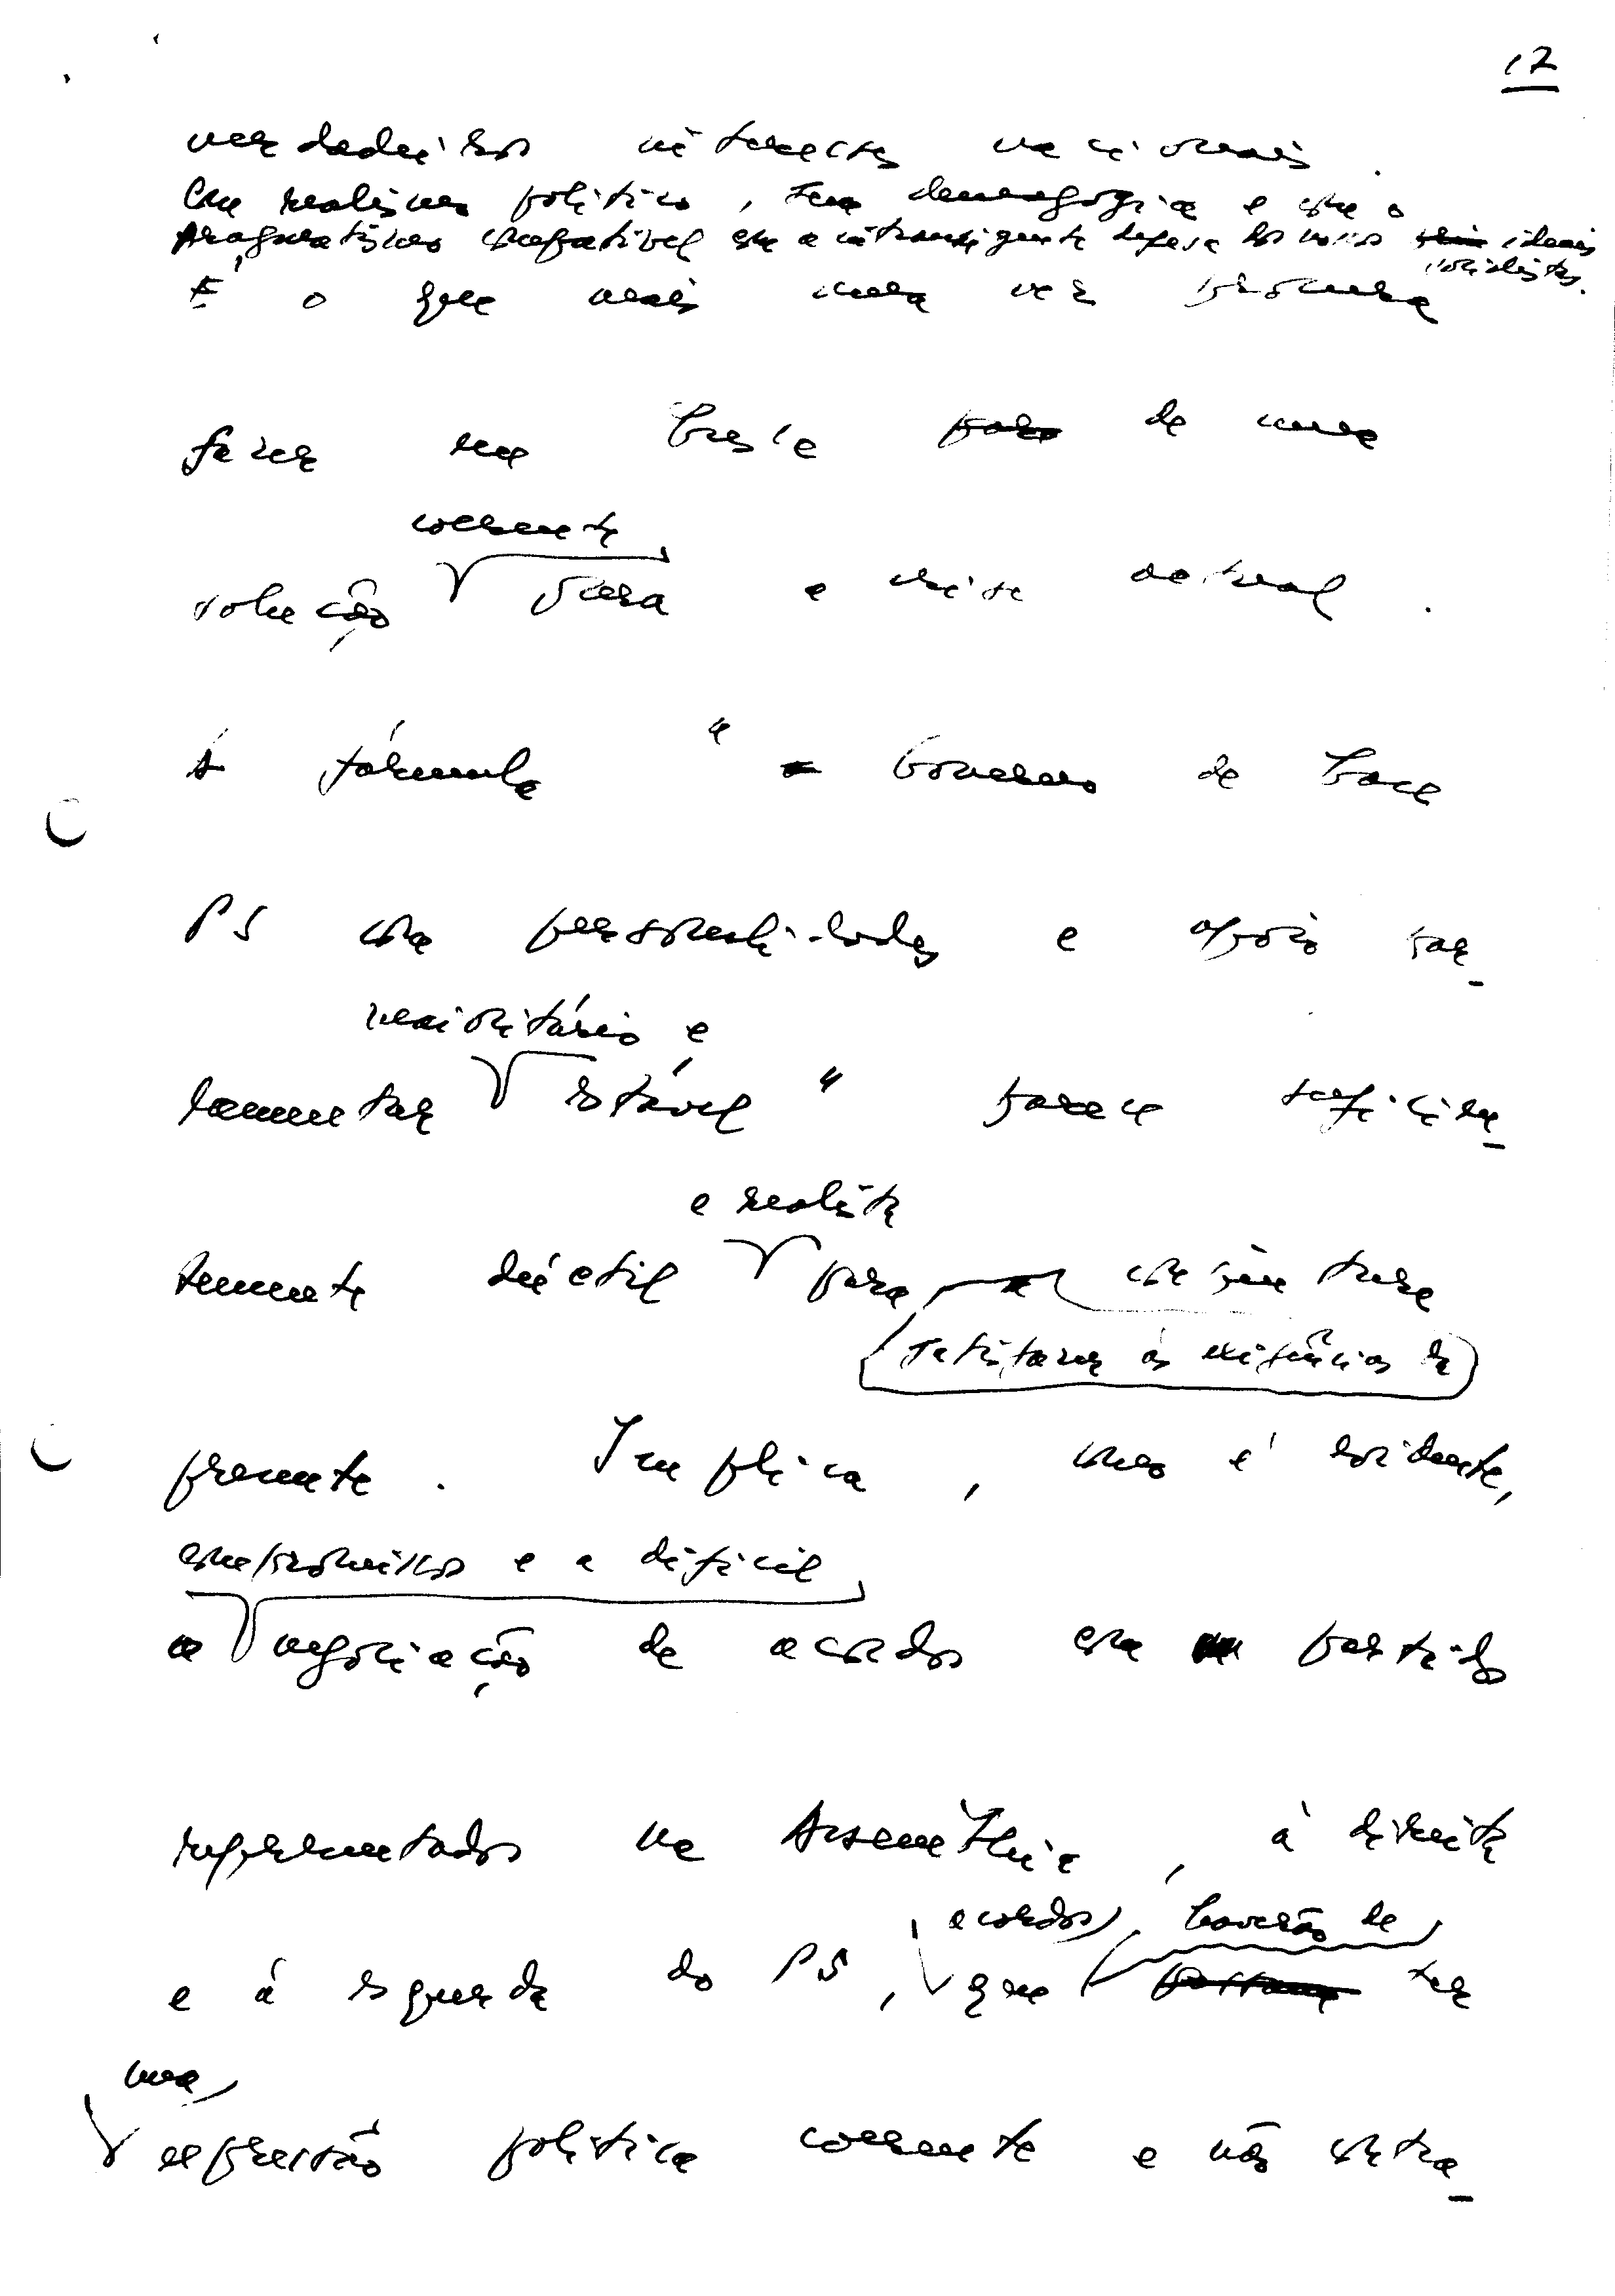 12
verdadeiros interesses nacionais.
Com realismo político, sem demagogia e com o
pragmatismo compatível com a intransigente defesa dos nossos ideais
socialistas.
É o que mais uma vez procura
fazer em busca de uma
coerente
solução para a crise actual.
A fórmula "Governo de base
PS com personalidades e apoio par-
maioritário e
lamentar estável" parece suficien-
e realista
temente dúctil para conjuntura
satisfazer as exigências da
presente. Implica, como é evidente,
compromissos e a difícil
a negociação de acordos com partidos
representados na Assembleia, à direita
acordos, haverão de
e à esquerda do PS, que ter
uma
expressão política coerente e não contra-